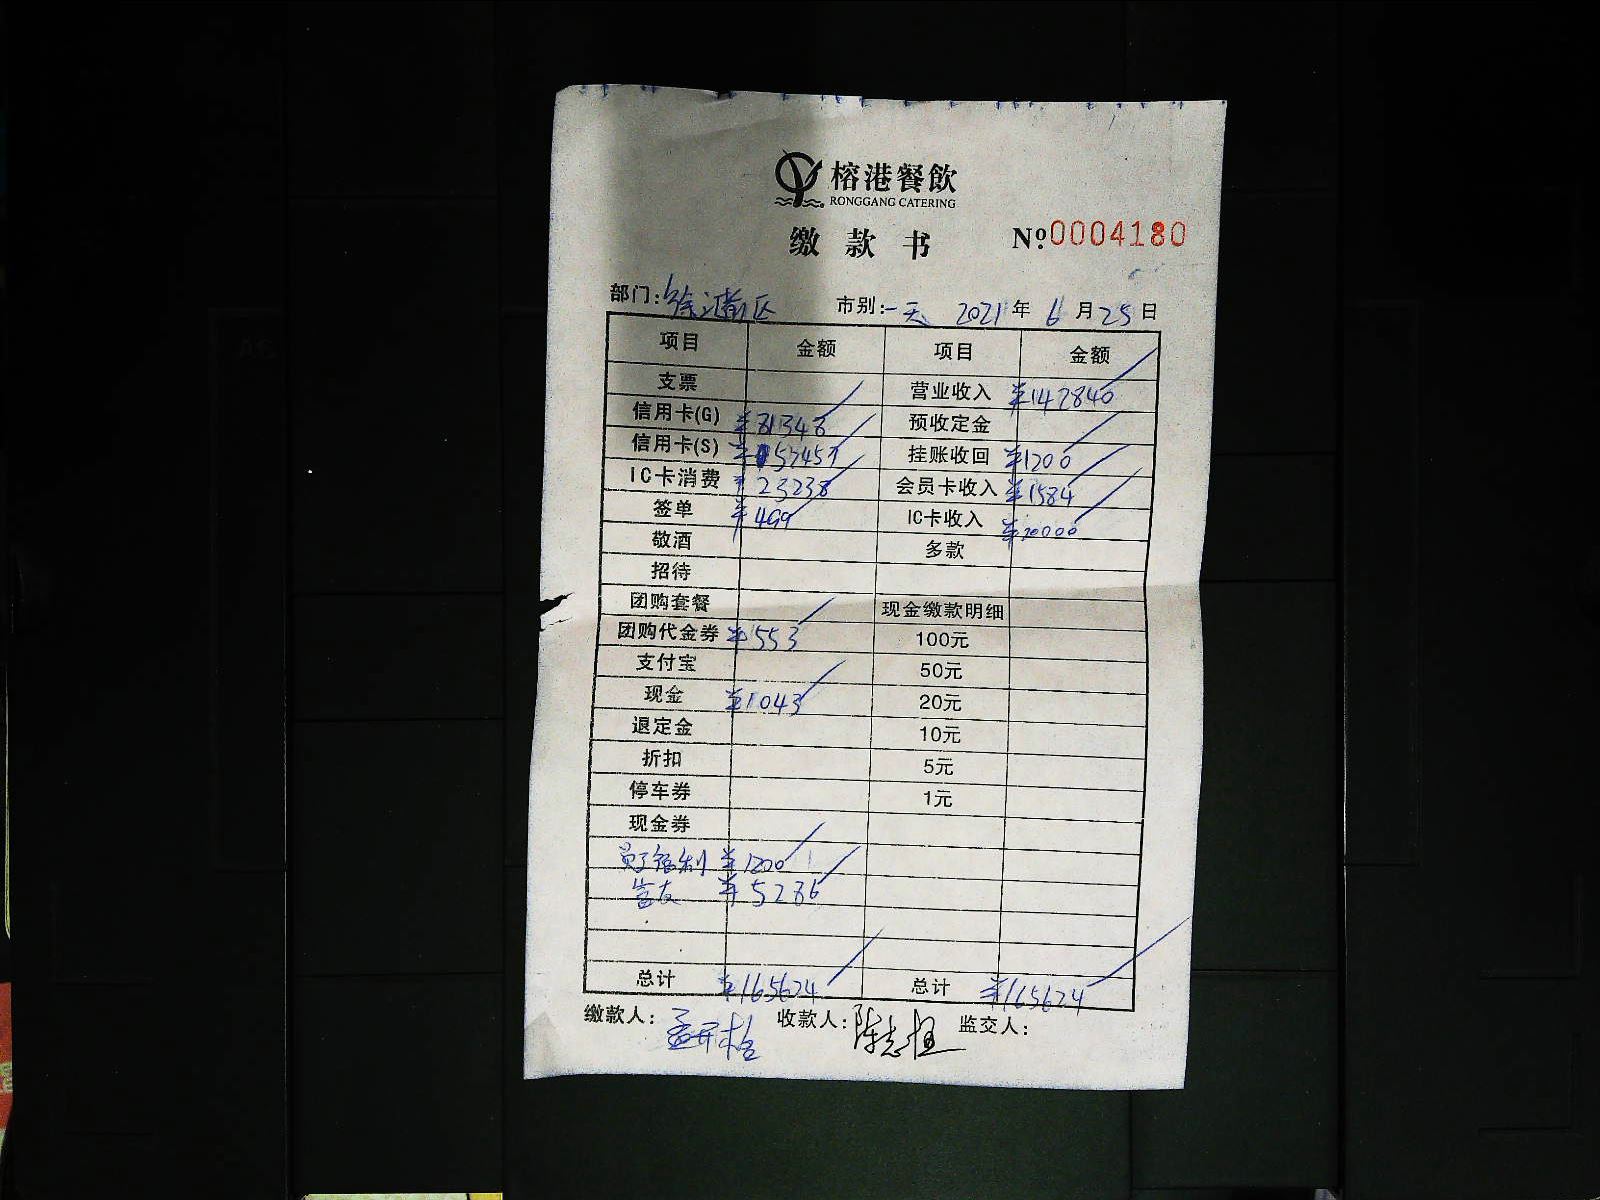 榕港餐飲
RONGGANG CATERING
缴款书 №0004180
部门: 市别:一天 2021年6月25日
项目 金额 项目 金额
支票 营业收入 ¥142840
信用卡(G) ¥81348 预收定金
信用卡(S) ¥52457 挂账收回 ¥1200
IC卡消费 ¥23238 会员卡收入 ¥1584
签单 ¥499 IC卡收入 ¥20000
敬酒 多款
招待
团购套餐 现金缴款明细
团购代金券 ¥553 100元
支付宝 50元
现金 ¥1043 20元
退定金 10元
折扣 5元
停车券 1元
现金券
员工福利 ¥1200
¥5286
总计 ¥165624 总计 ¥165624
缴款人: 收款人: 监交人: